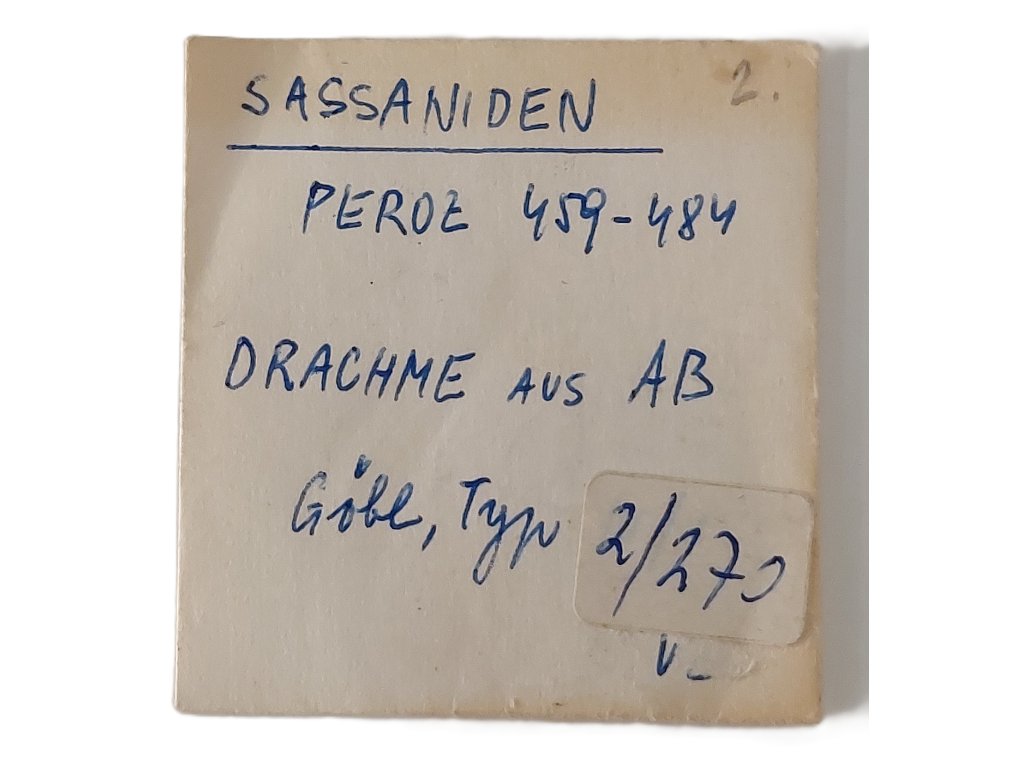 2.
SASSANIDEN
PEROZ 459-484
DRACHME AUS AB
Göbl, Typ 2/270